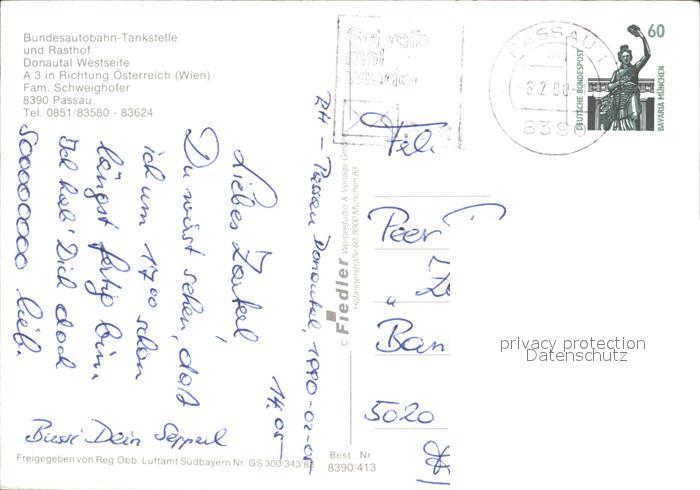 Bundesautobahn-Tankstelle
und Rasthof
Donautal Westseite
A 3 in Richtung Österreich (Wien)
Fam. Schweighofer
8390 Passau
Tel. 0851/83580 - 83624
Schreib
mal
wieder
PASSAU 1
8390
60
DEUTSCHE BUNDESPOST
BAVARIA MÜNCHEN
RH - Passau Donautal, 1990-02-
14.05
Liebes
Du wirst sehen, daß
ich um 17.00 schon
längst fertig bin.
Ich hab' Dich doch
sooooooooo lieb.
Bussi Dein Sepperl
© Fiedler Werbestudio & Verlags
8000 München 83
Peer
"
Ban
5020
privacy protection
Datenschutz
Freigegeben von Reg. Obb. Luftamt Südbayern Nr. GS 300/343/
Best. Nr
8390/413